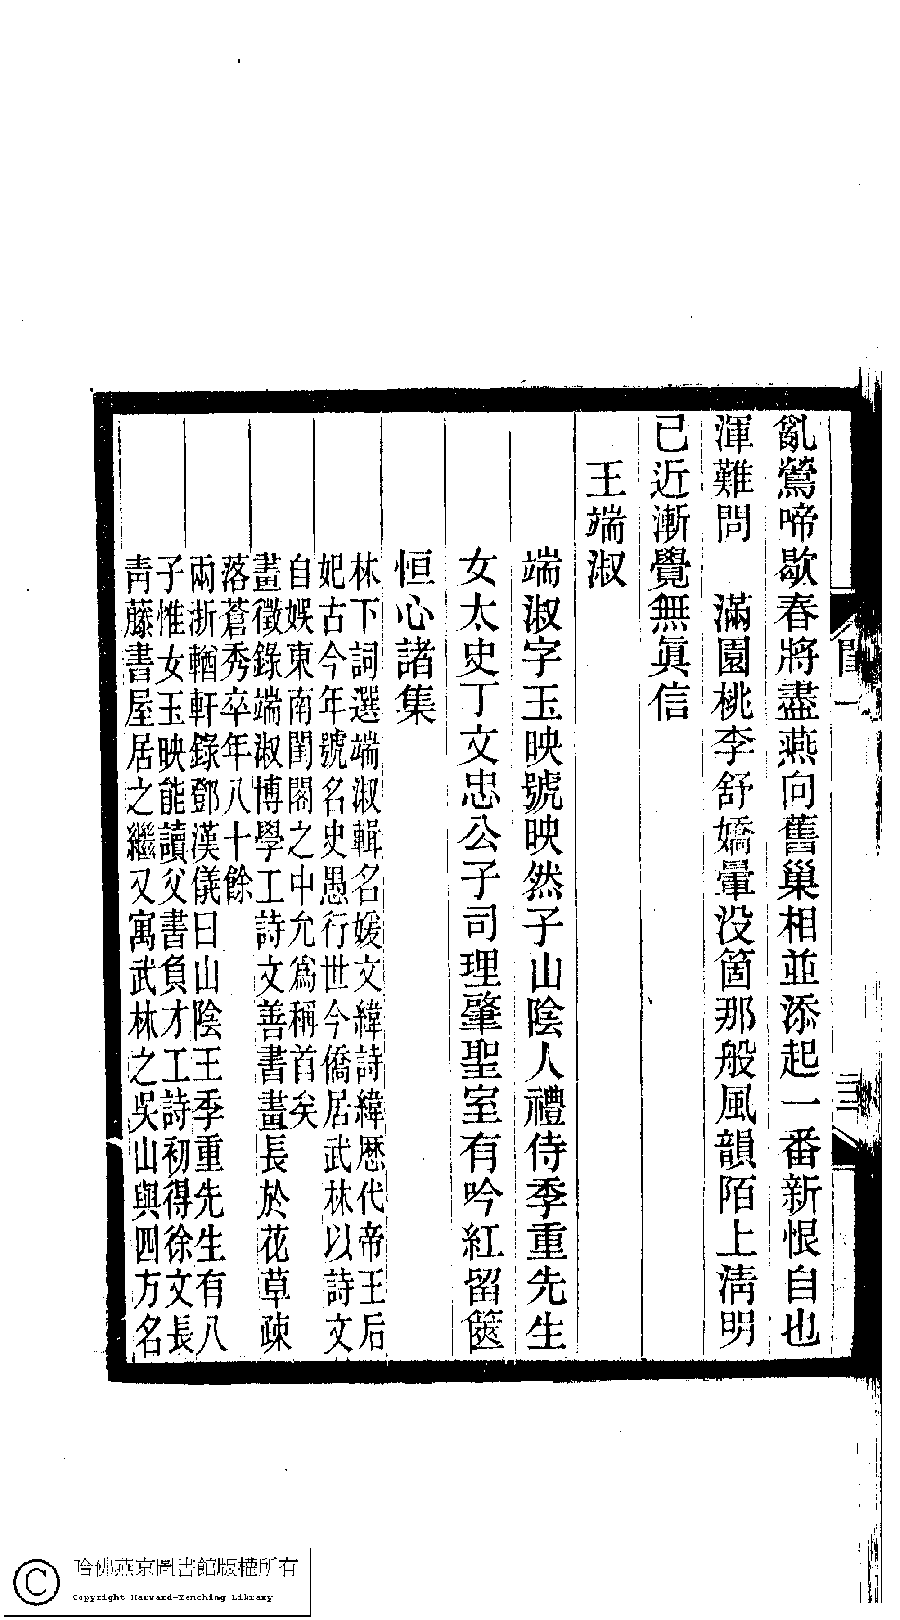 亂鶯啼歇春將盡燕向舊巢相並添起一番新恨自也
渾難問　滿園桃李舒嬌暈没箇那般風韻陌上淸明
已近漸覺無眞信
王端淑
端淑字玉映號映然子山陰人禮侍季重先生
女太史丁文忠公子司理肇聖室有吟紅留篋
恒心諸集
林下詞選端淑輯名媛文緯詩緯歷代帝王后
妃古今年號名史愚行世今僑居武林以詩文
自娛東南閨閣之中允爲稱首矣
畫徵錄端淑博學工詩文善書畫長於花草疎
落蒼秀卒年八十餘
兩浙輶軒錄鄧漢儀曰山陰王季重先生有八
子惟女玉映能讀父書負才工詩初得徐文長
靑藤書屋居之繼又寓武林之吳山與四方名
三
哈佛燕京圖書館版權所有
Copyright Harvard-Yenching Library